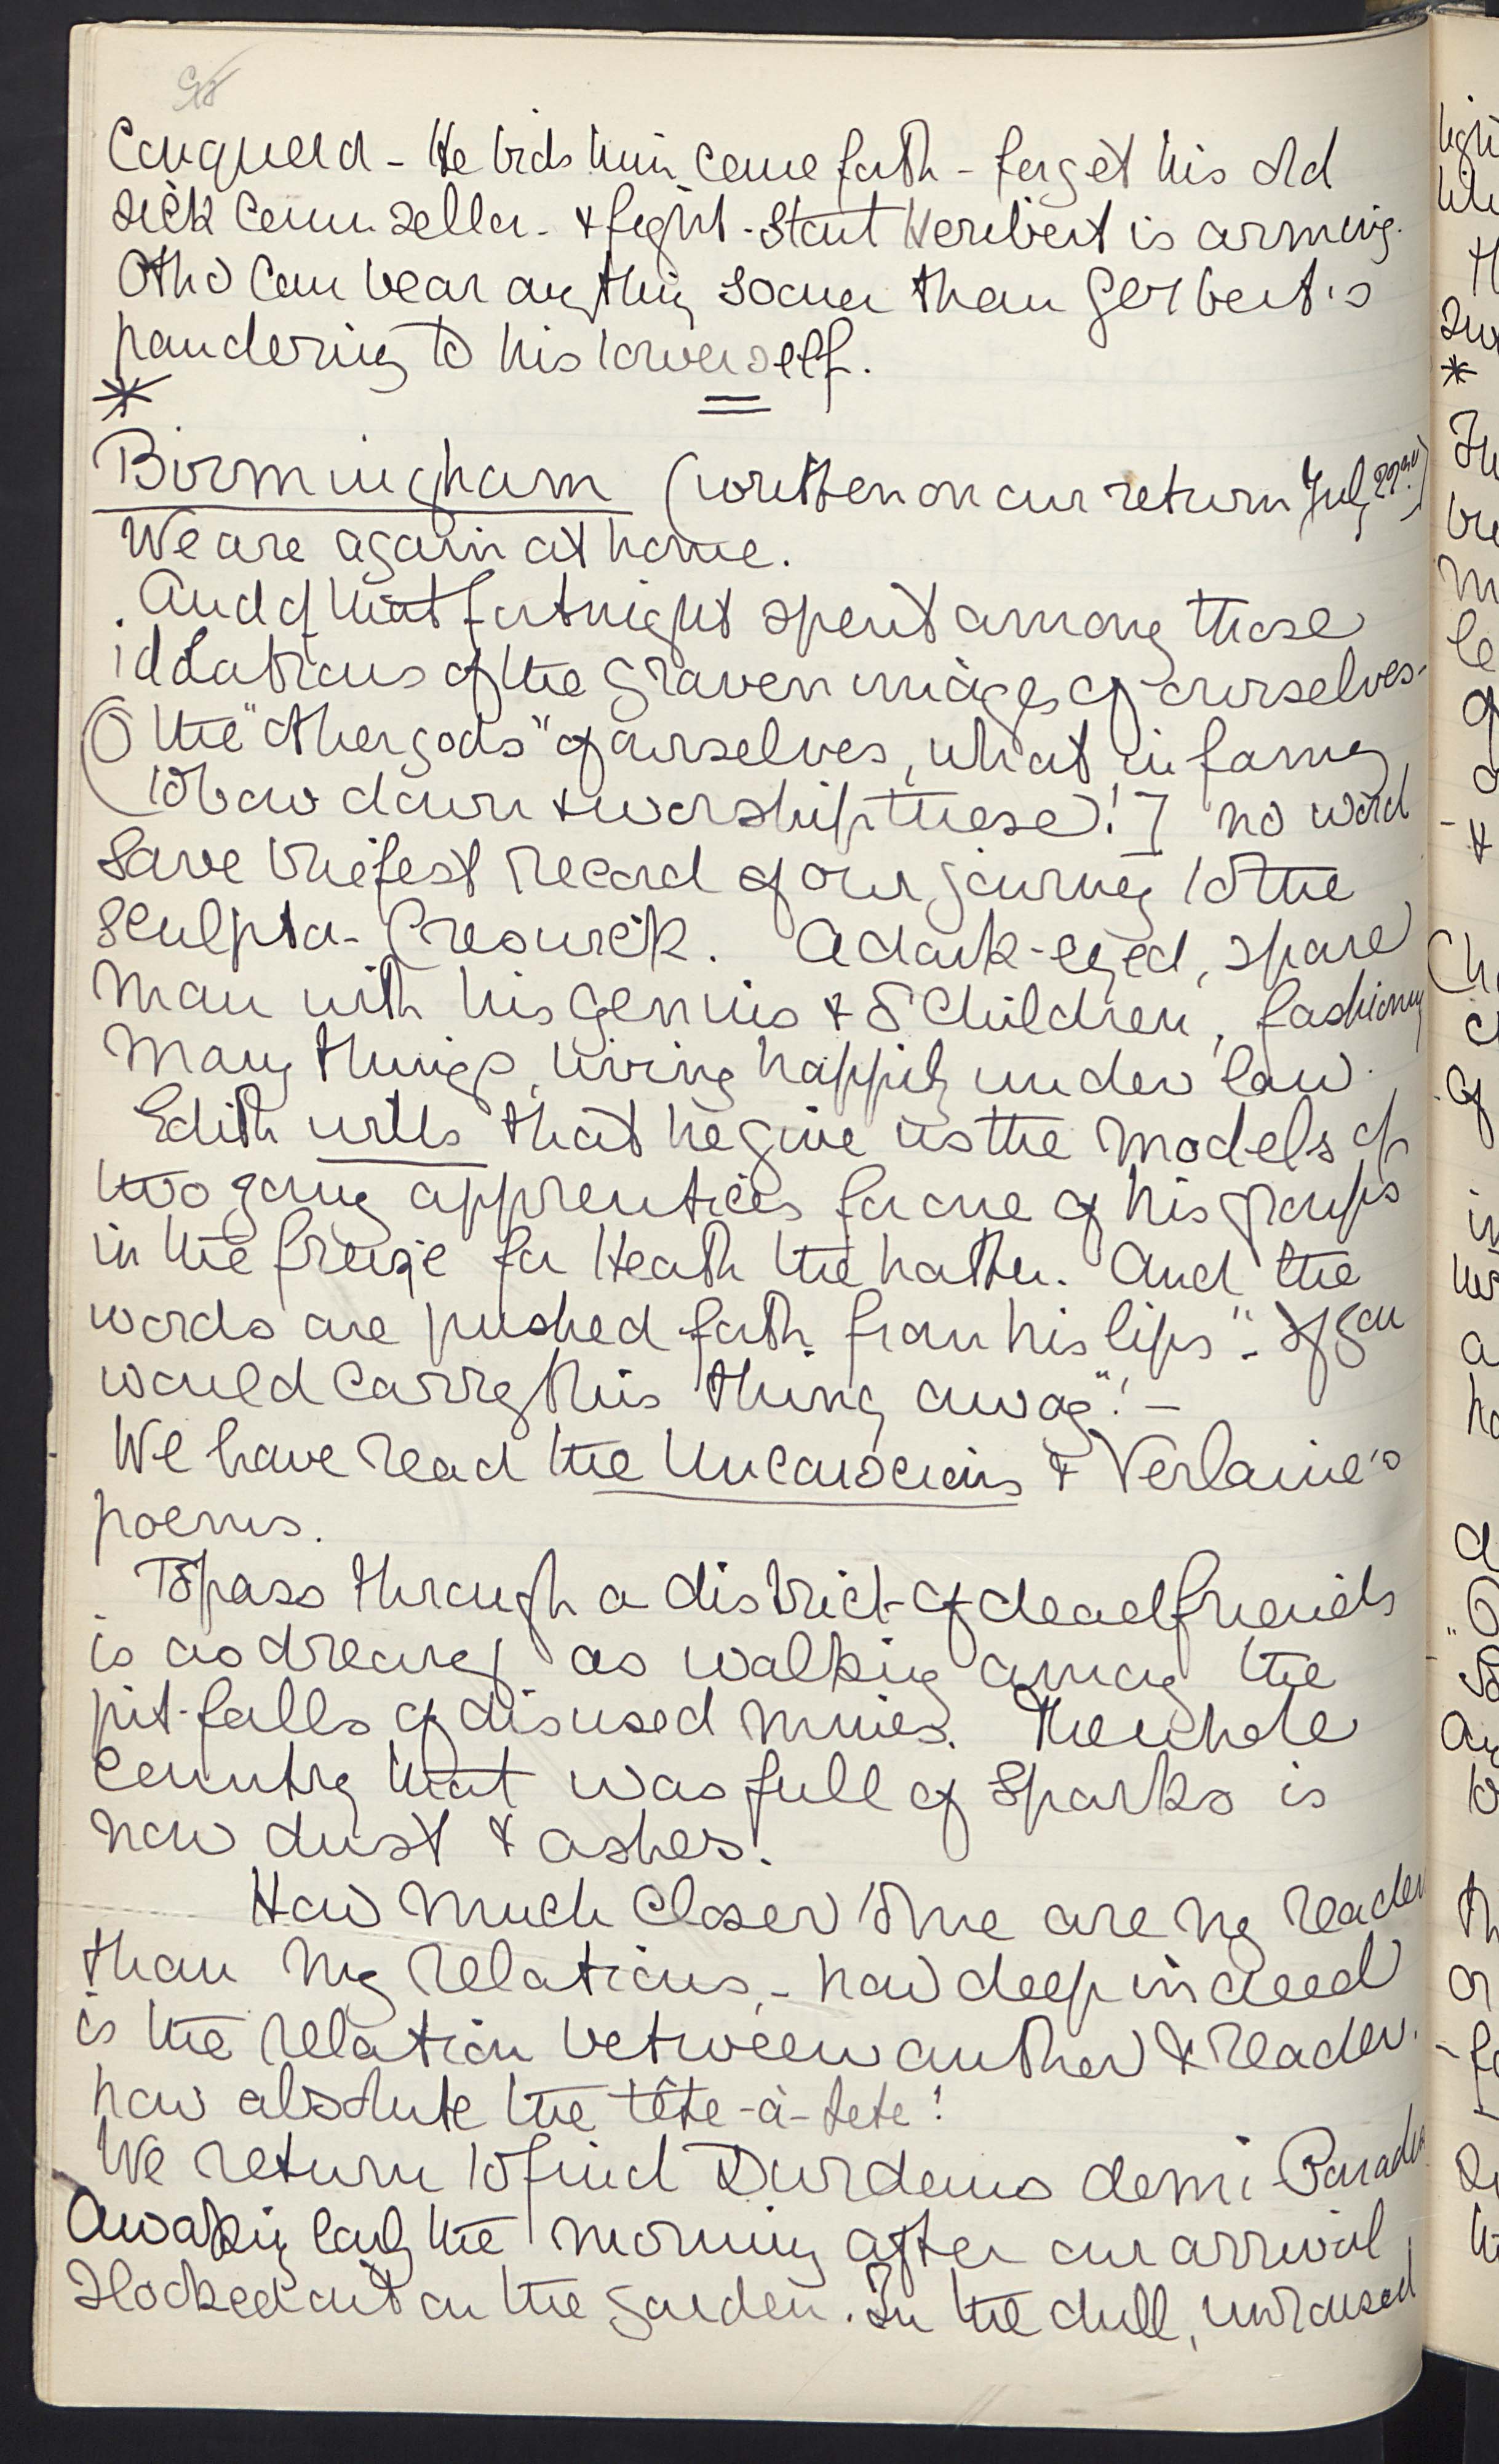 98
Conquered - He bids him come forth - forget his old
sick counsellor - & fight. Stout Heribert is arming.
Otho can bear anything sooner than Gerbert's
pandering to his lower self.
*
Birmingham (written on our return July 22nd)
We are again at home.
And of that fortnight spent among those
idolatrous of the graven images of ourselves -
(O the "other gods" of ourselves, what infamy
to bow down & worship these!] no word
save briefest record of our journey to the
sculptor - Creswick. A dark-eyed, spare
man with his genius & 8 children, fashioning
many things, living happily under law.
Edith wills that he give us the models of
two young apprentices for one of his groups
in the freize for Heath the hatter. And the
words are pushed forth from his lips - "If you
would carry this thing away"! -
We have read the Unconscious & Verlaine's
poems.
To pass through a district of dead friends
is as dreary as walking among the
pit-falls of disused mines. The whole
country that was full of sparks is
now dust & ashes.
How much closer to me are my readers
than my relations, - how deep indeed
is the relation between author & reader.
how absolute the tête-à-tete!
We return to find Durdans demi-Paradise
Awaking early the morning after our arrival
I looked out on the garden. In the dull, unroused